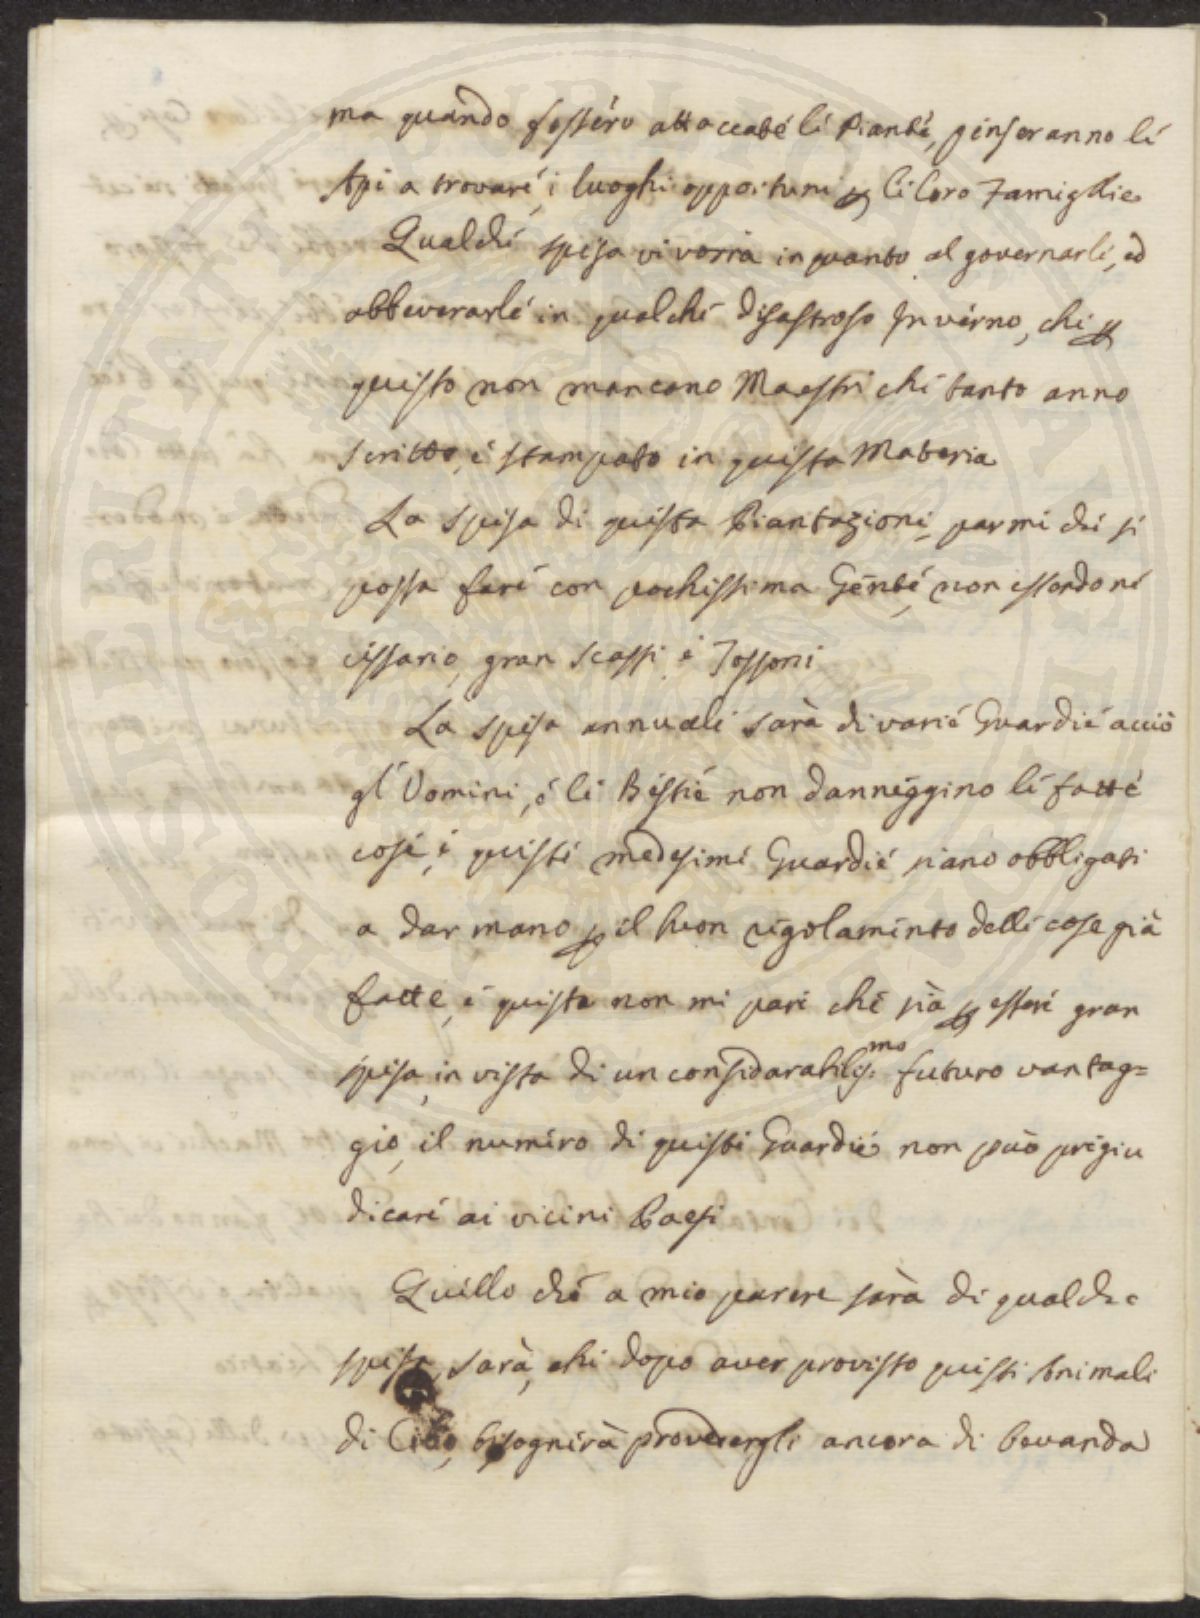 ma quando fossero attaccate le Piante, penseranno le
Api a trovare, i luoghi opportuni p le loro Famiglie
Qualche spesa vi vorrà in quanto al governarle, ed
abbeverarle in qualche disastroso Inverno, che p
questo non mancano Maestri che tanto anno
scritto, e stampato in questa Materia
La spesa di questa Piantazioni, parmi che si
possa fare con pochissima Gente, non essendo ne
cessario, gran scassi, e Fossoni
La spesa annuale sarà di varie Guardie acciò
gl' Uomini, e le Bestie non danneggino le fatte
cose, e queste medesime Guardie siano obbligati
a dar mano p il buon regolamento delle cose già
fatte, e questa non mi pare che sia p essere gran
spesa, in vista di un considarabilis:mo futuro vantag=
gio, il numero di queste Guardie non può pregiu
dicare ai vicini Paesi
Quello che a mio parere sarà di qualche
spesa, sarà, che dopo aver provisto questi Animali
di Cibo, bisognerà provedergli ancora di bevanda